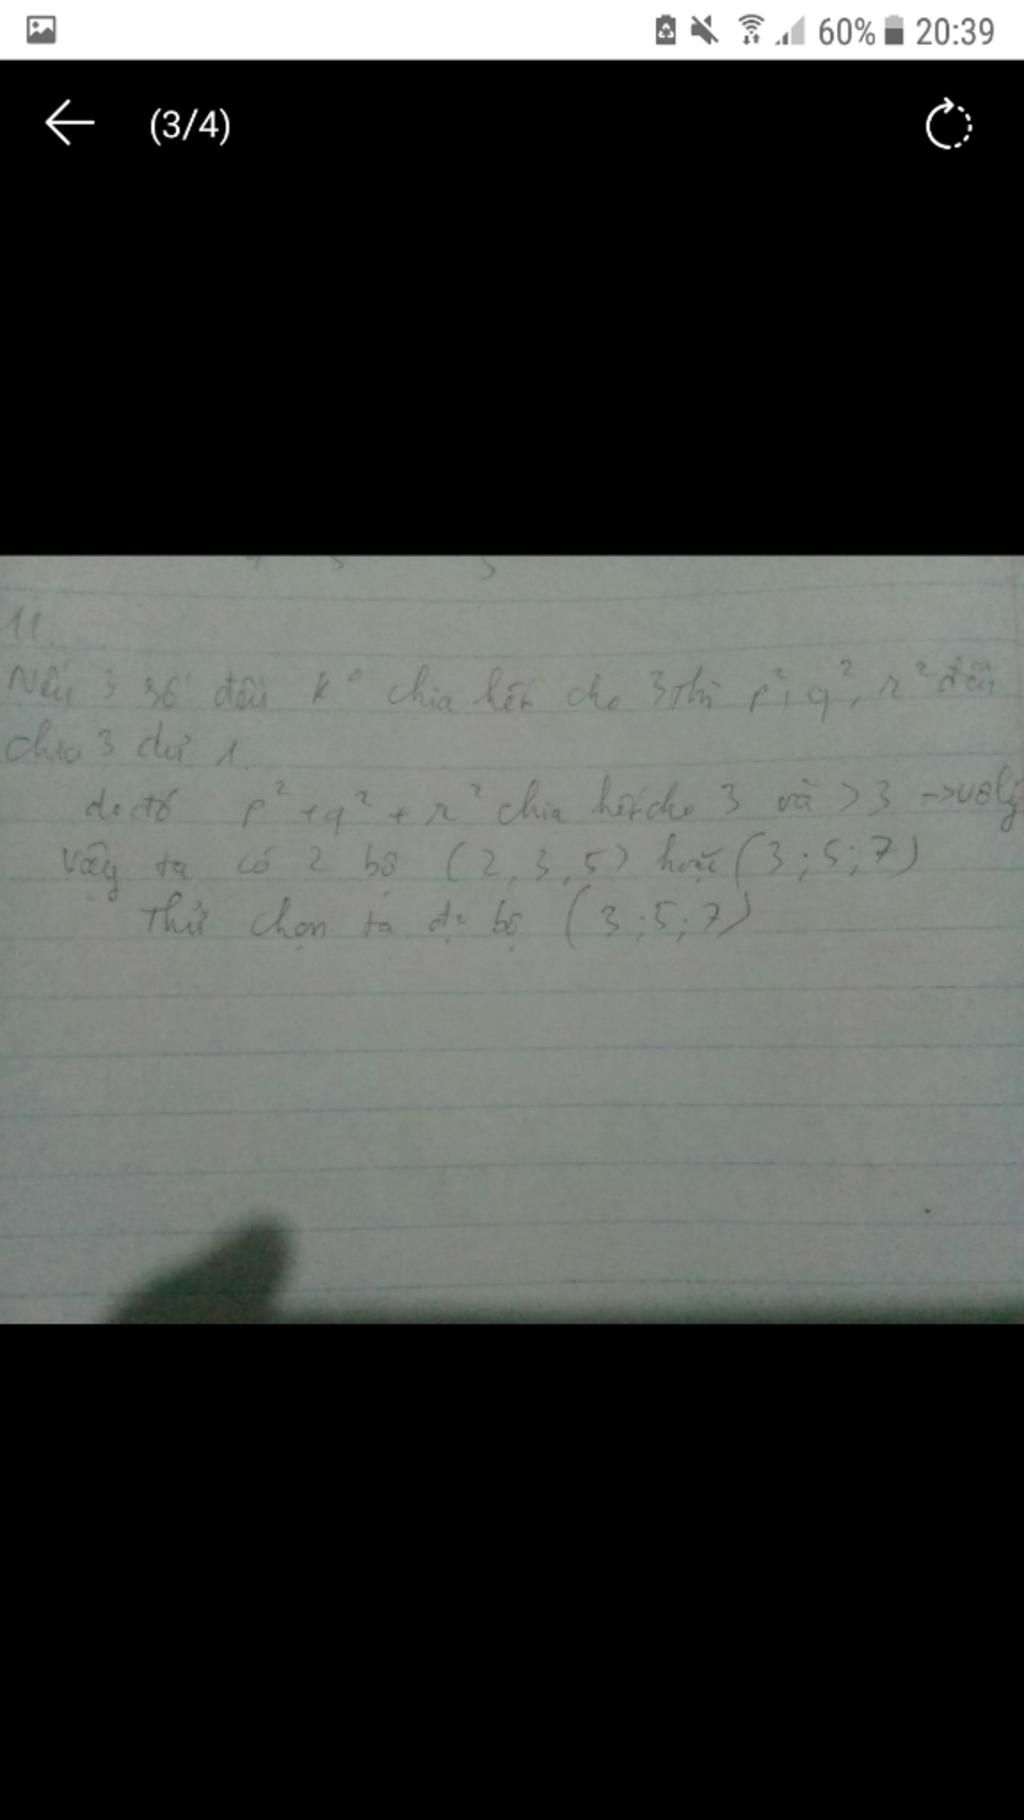 60% 20:39
(3/4)
11.
Nếu 3 số đều k° chia hết cho 3 thì p², q², r² đều
chia 3 dư 1
do đó p² + q² + r² chia hết cho 3 và > 3 → vô lý
Vậy ta có 2 bộ (2, 3, 5) hoặc (3; 5; 7)
Thử chọn ta đc bộ (3; 5; 7)